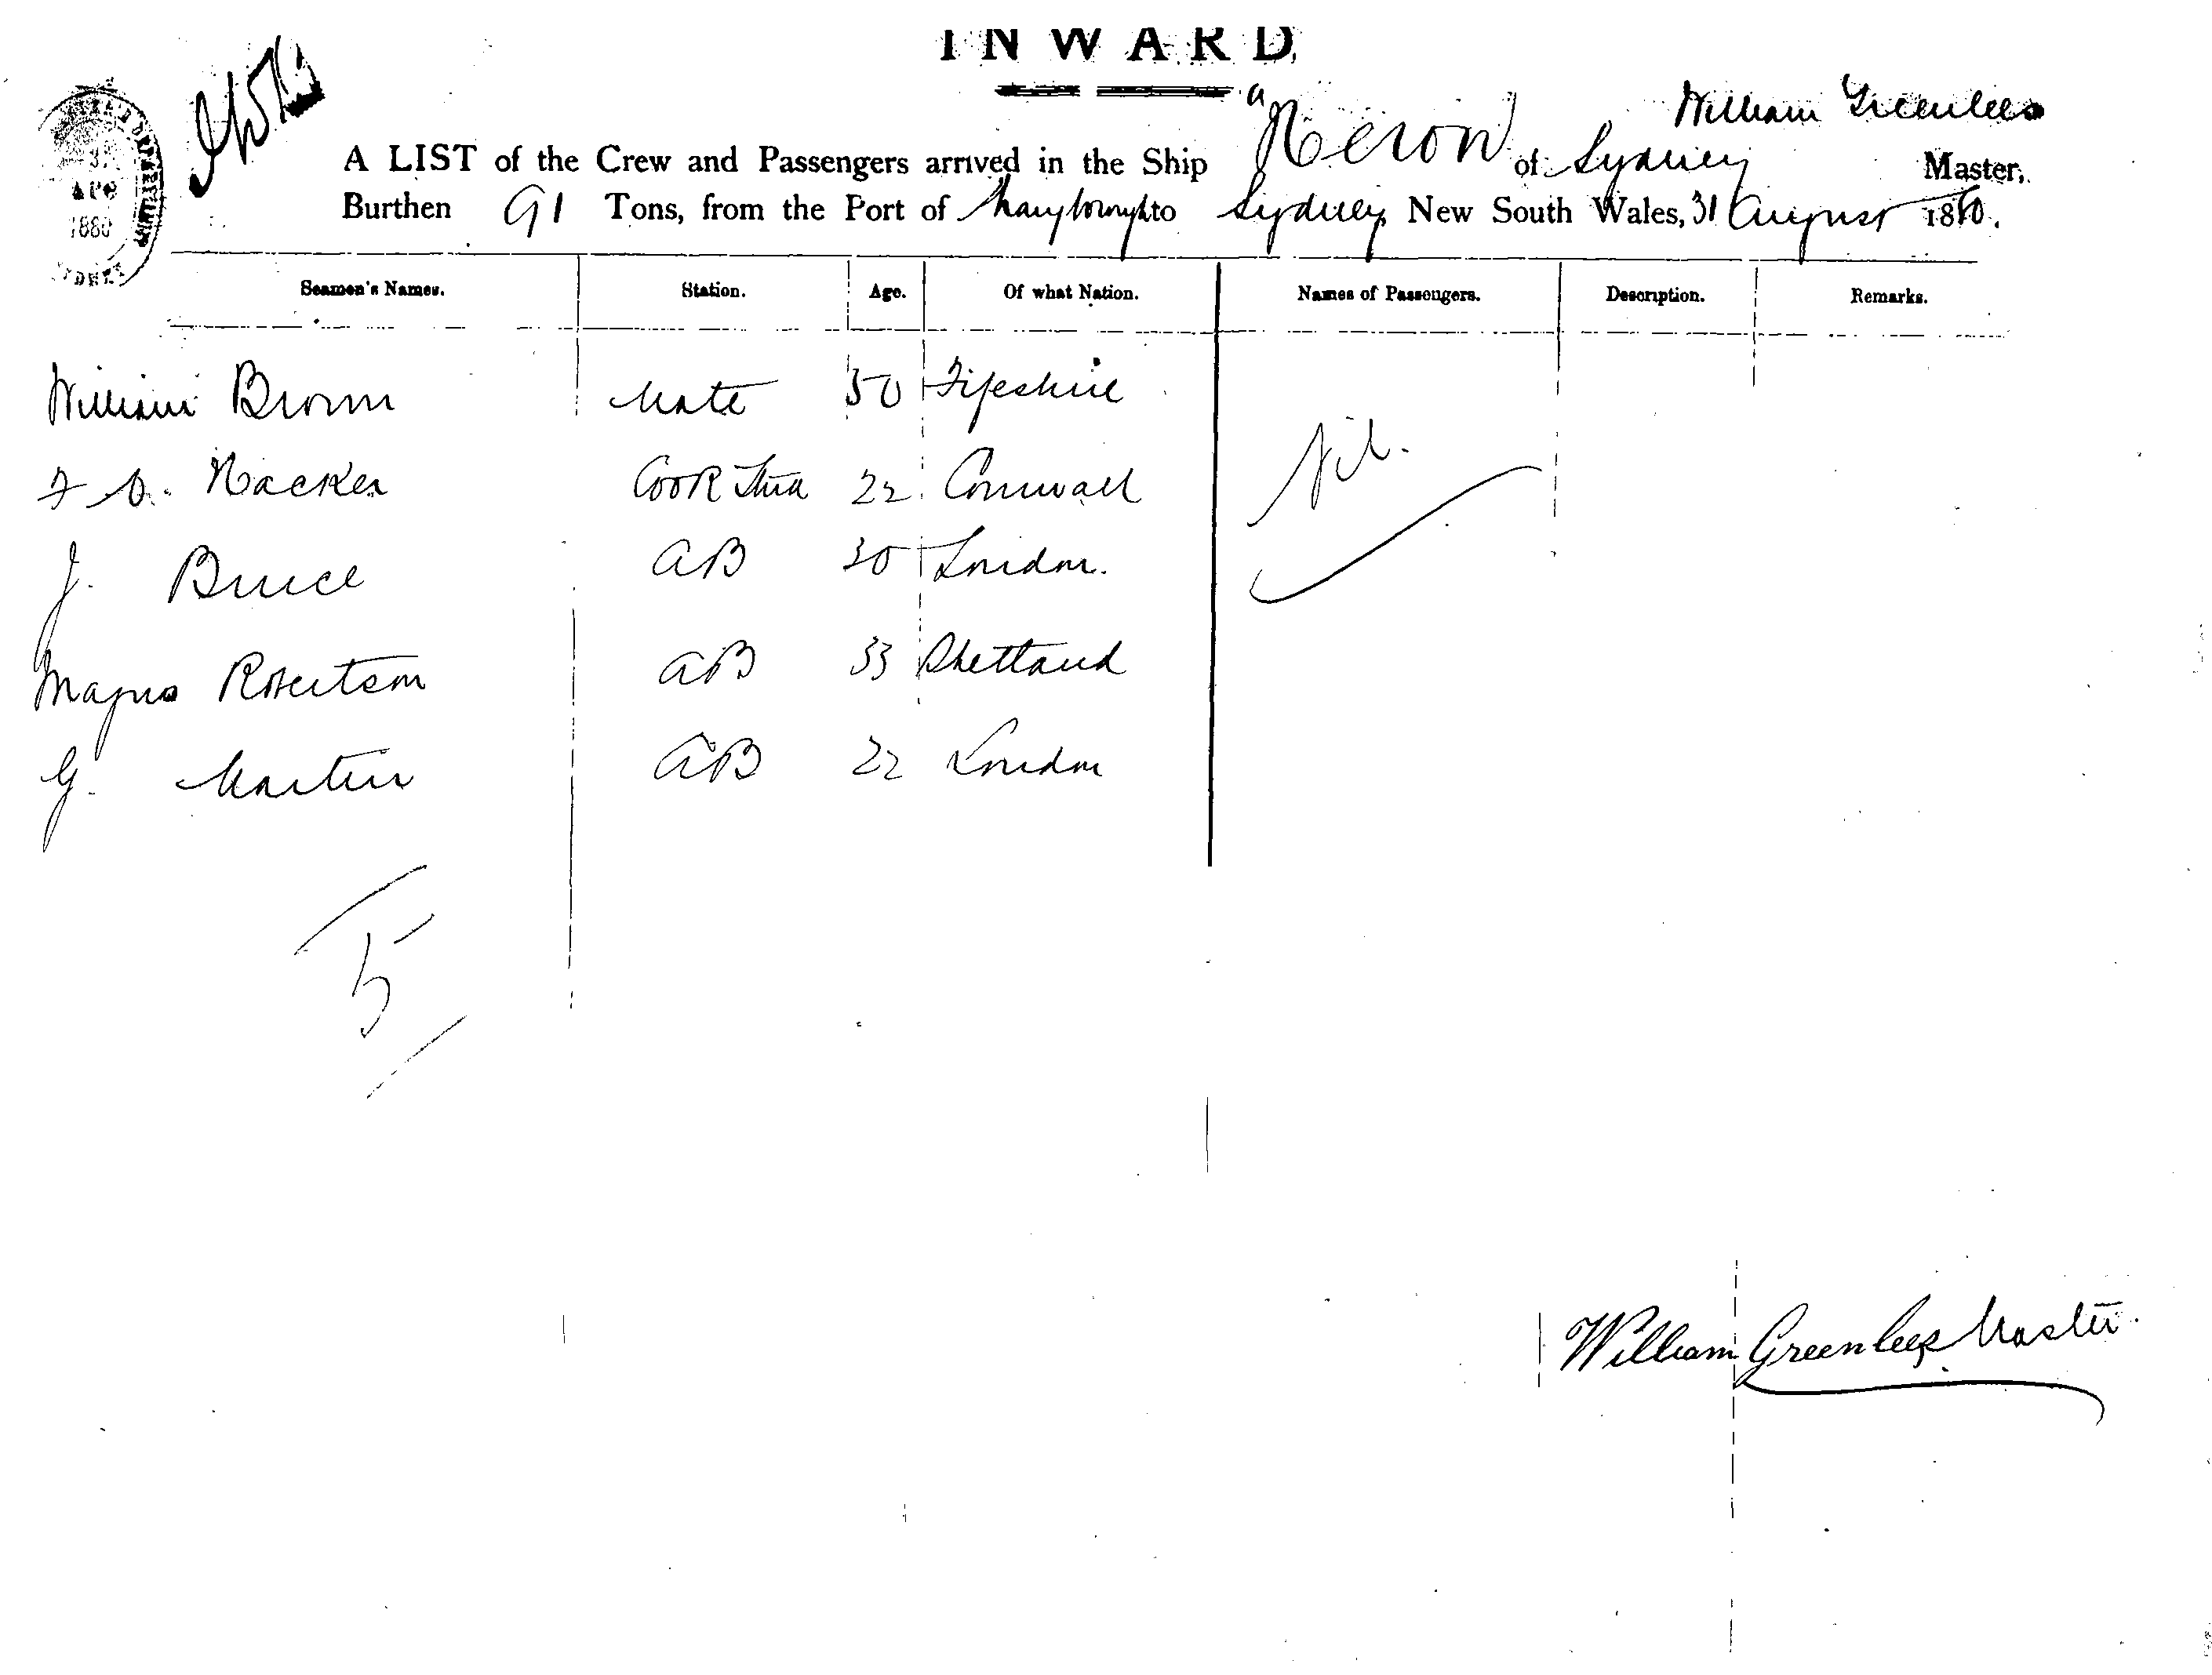 INWARD
William Greenlees
A LIST of the Crew and Passengers arrived in the Ship "Heron of Sydney Master,
Burthen 91 Tons, from the Port of Maryborough to Sydney, New South Wales, 31 August 1880.
Seamen's Names. Station. Age. Of what Nation. Names of Passengers. Description. Remarks.
William Brown Mate 50 Fifeshire
Nil.
Hacker Cook 22 Cornwall
J. Bruce AB 30 London.
Magnus Robertson AB 33 Shetland
G. Martin AB 22 London
5
William Greenlees Master.